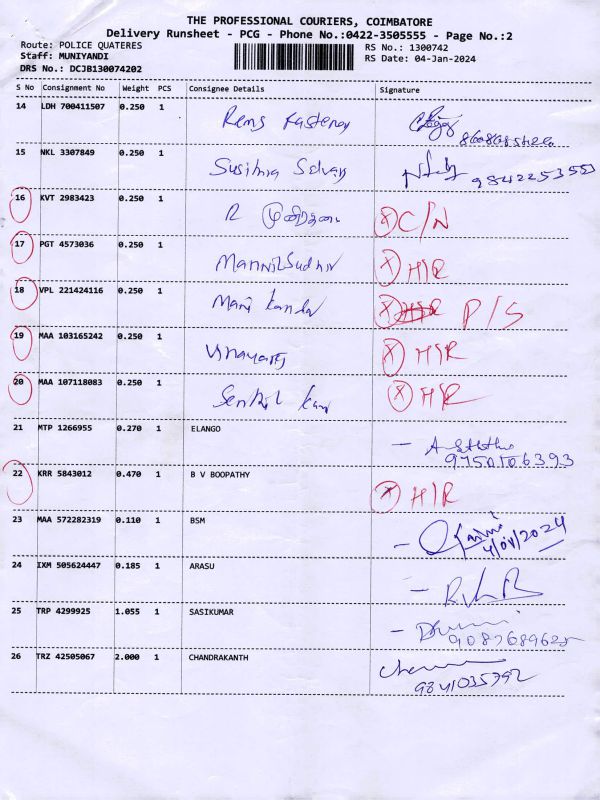 THE PROFESSIONAL COURIERS, COIMBATORE
Delivery Runsheet - PCG - Phone No.:0422-3505555 - Page No.:2
Route: POLICE QUATERES RS No.: 1300742
Staff: MUNIYANDI RS Date: 04-Jan-2024
DRS No.: DCJB130074202
S No Consignment No Weight PCS Consignee Details Signature
14 LDH 700411507 0.250 1
15 NKL 3307849 0.250 1 9842253550
16 KVT 2983423 0.250 1 R C/N
17 PGT 4573036 0.250 1 H/R
18 VPL 221424116 0.250 1 Mani P/S
19 MAA 103165242 0.250 1 H/R
20 MAA 107118083 0.250 1 H/R
21 MTP 1266955 0.270 1 ELANGO
22 KRR 5843012 0.470 1 B V BOOPATHY H/R
23 MAA 572282319 0.110 1 BSM
24 IXM 505624447 0.185 1 ARASU
25 TRP 4299925 1.055 1 SASIKUMAR
26 TRZ 42505067 2.000 1 CHANDRAKANTH
9841035792